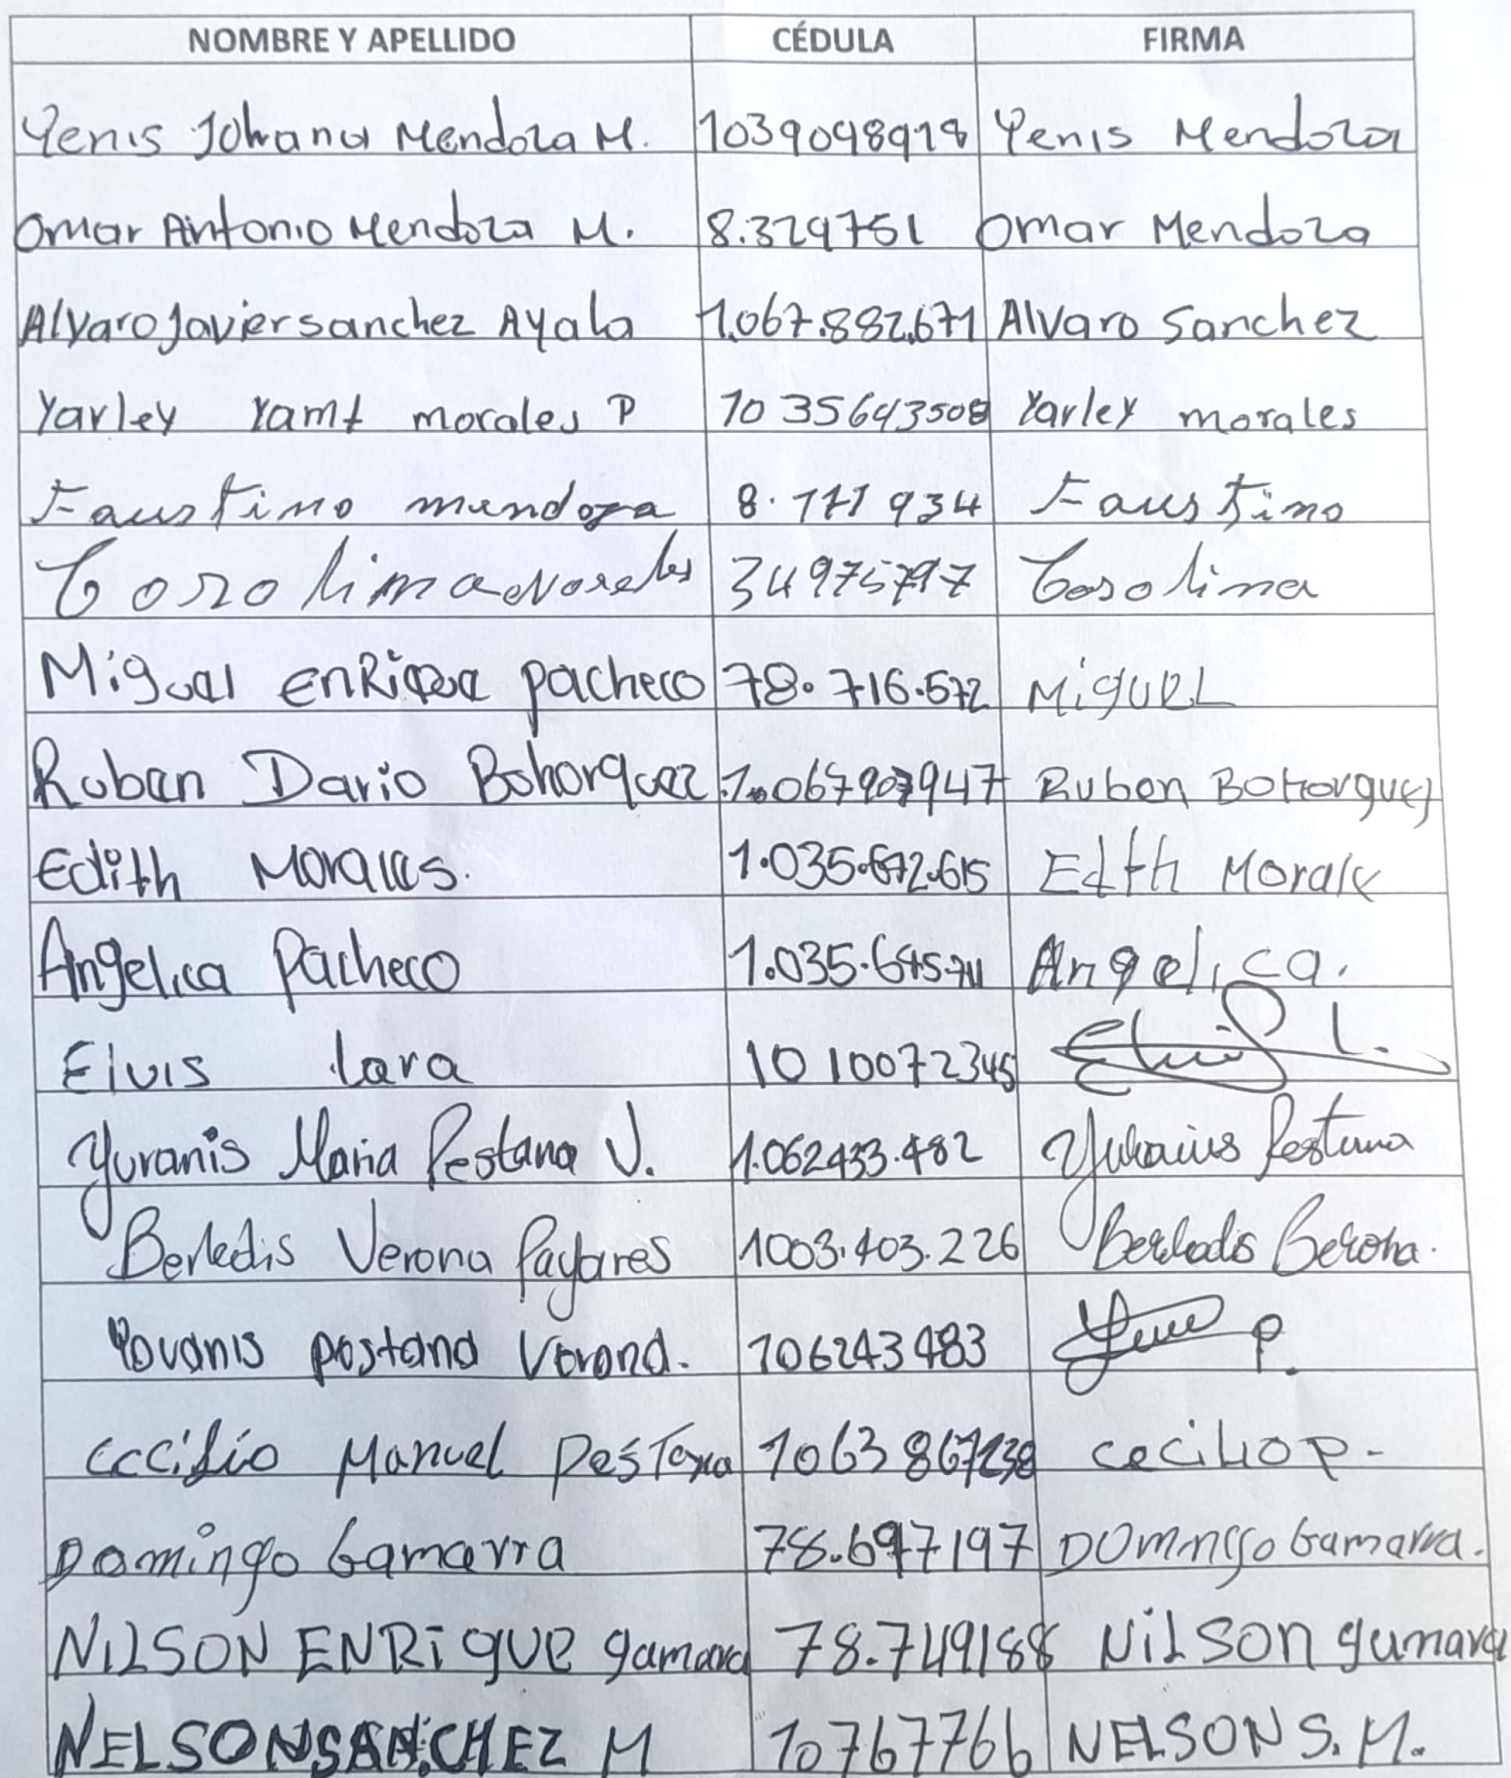 NOMBRE Y APELLIDO CÉDULA FIRMA
Yenis Johana Mendoza M. 1039098978 Yenis Mendoza
Omar Antonio Mendoza M. 8.329751 Omar Mendoza
Alvaro Javier sanchez Ayala 1.067.882.671 Alvaro Sanchez
Yarley Yamt morales P 1035643508 Yarley morales
Faustino mendoza 8.171934 Faustino
34975797
Migual EnRique pacheco 78.716.572 MiguEL
Ruban Dario Bohorquez 1.067907947 Ruben BoHorquez
Edith Morales. 1.035.672.615 Edth Morale
Angelica Pacheco 1.035.645.711 Angelica.
Elvis lara 1010072345 Elvis L.
Yuranis Maria Pestana V. 1.062433.482 Yuranis Pestana
Berledis Verona Payares 1003.403.226 Berledis Berona.
Yovanis pestana Verona. 106243483 P.
Cecilio Manuel Pestana 1063867238 cecilio p-
Domingo Gamarra 78.697197 DOmngo Gamarra.
NILSON ENRiqUE gamarra 78.749188 NiLSON gamarra
NELSON SANCHEZ M 10767766 NELSON S. M.